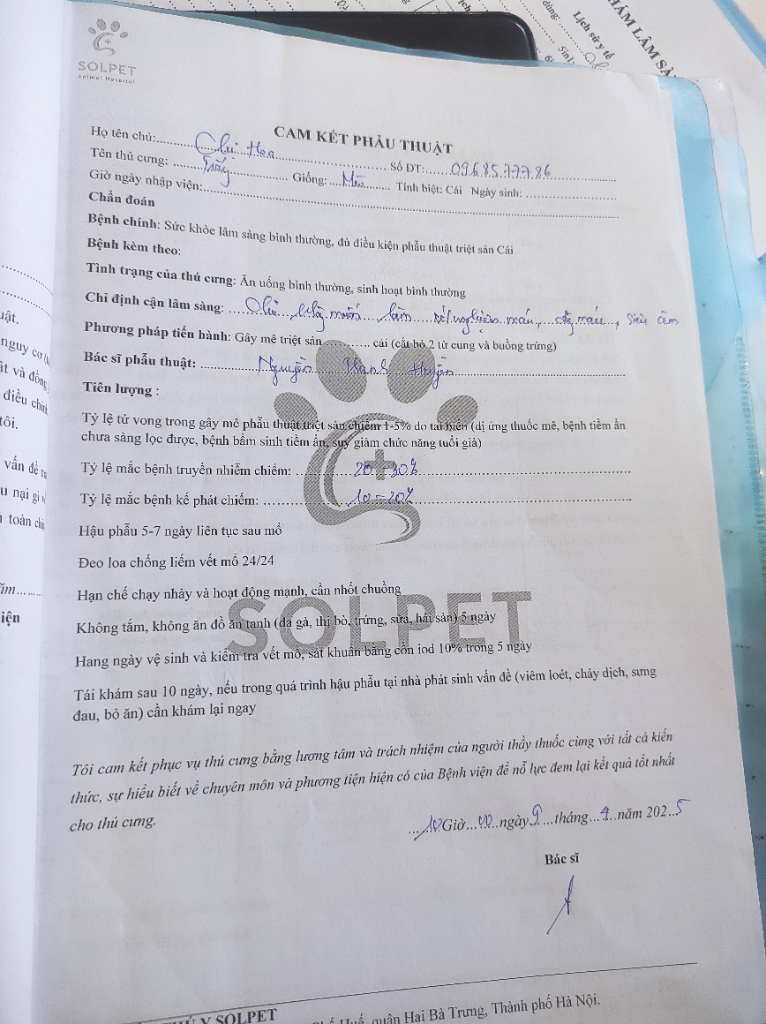 SOLPET
Animal Hospital
CAM KẾT PHẪU THUẬT
Họ tên chủ: Chị Hoa Số ĐT: 0968577786
Tên thú cưng: Trắng Giống: Mèo Tính biệt: Cái Ngày sinh:
Giờ ngày nhập viện:
Chẩn đoán
Bệnh chính: Sức khỏe lâm sàng bình thường, đủ điều kiện phẫu thuật triệt sản Cái
Bệnh kèm theo:
Tình trạng của thú cưng: Ăn uống bình thường, sinh hoạt bình thường
Chỉ định cận lâm sàng: Chủ không muốn làm xét nghiệm máu, máu, siêu âm
Phương pháp tiến hành: Gây mê triệt sản cái (cắt bỏ 2 tử cung và buồng trứng)
Bác sĩ phẫu thuật: Nguyễn Huyền
Tiên lượng :
Tỷ lệ tử vong trong gây mê phẫu thuật triệt sản chiếm 1-5% do tai biến (dị ứng thuốc mê, bệnh tiềm ẩn
chưa sàng lọc được, bệnh bẩm sinh tiềm ẩn, suy giảm chức năng tuổi già)
Tỷ lệ mắc bệnh truyền nhiễm chiếm: 20-30%
Tỷ lệ mắc bệnh kế phát chiếm: 10-20%
Hậu phẫu 5-7 ngày liên tục sau mổ
Đeo loa chống liếm vết mổ 24/24
Hạn chế chạy nhảy và hoạt động mạnh, cần nhốt chuồng
SOLPET
Không tắm, không ăn đồ ăn tanh (da gà, thị bò, trứng, sữa, hải sản) 5 ngày
Hang ngày vệ sinh và kiểm tra vết mổ, sát khuẩn bằng cồn iod 10% trong 5 ngày
Tái khám sau 10 ngày, nếu trong quá trình hậu phẫu tại nhà phát sinh vấn đề (viêm loét, chảy dịch, sưng
đau, bỏ ăn) cần khám lại ngay
Tôi cam kết phục vụ thú cưng bằng lương tâm và trách nhiệm của người thầy thuốc cùng với tất cả kiến
thức, sự hiểu biết về chuyên môn và phương tiện hiện có của Bệnh viện để nỗ lực đem lại kết quả tốt nhất
cho thú cưng.
10 Giờ 00 ngày 9 tháng 4 năm 2025
Bác sĩ
Y SOLPET
Huế, quận Hai Bà Trưng, Thành phố Hà Nội.